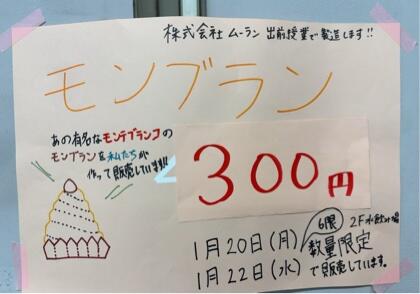 株式会社 ムーラン 出前授業で製造します!!
モンブラン
あの有名なモンテブランコの
モンブランを私たちが
作って販売しています!!!
300円
6限
2F水飲み場
1月20日(月)
数量限定
1月22日(水)
で販売しています。